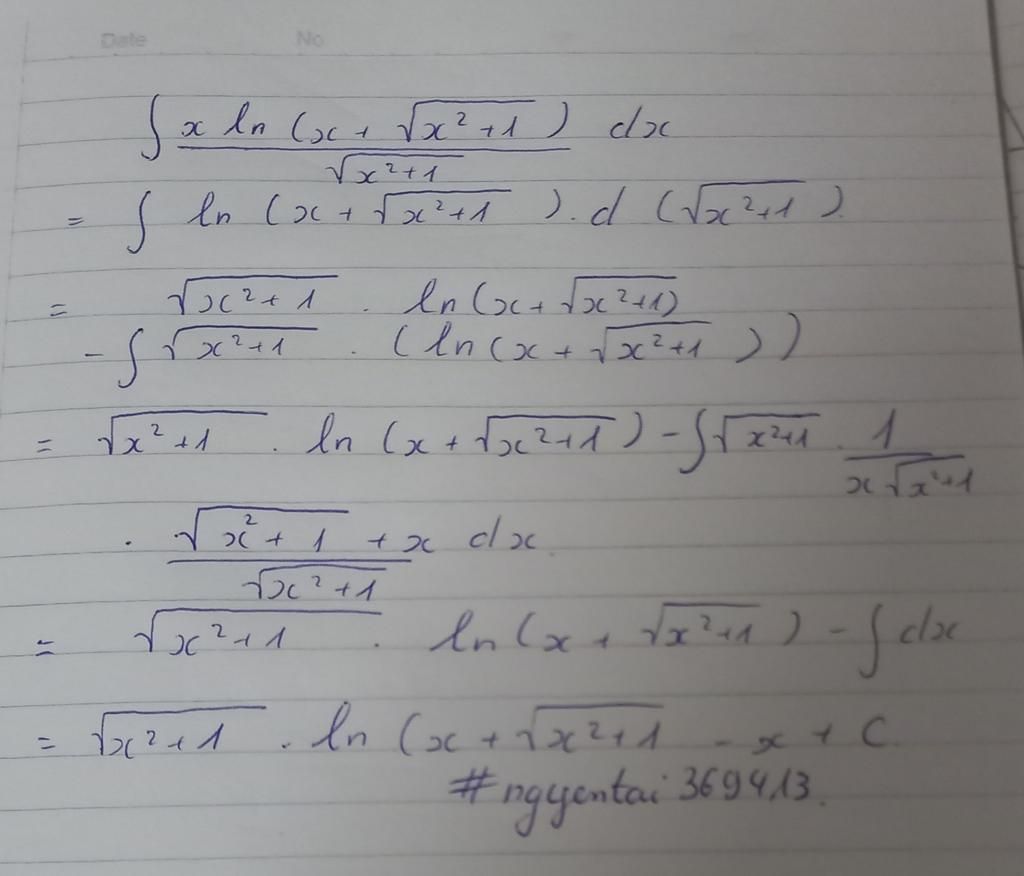 Date No
∫ x ln (x + √(x²+1)) / √(x²+1) dx
= ∫ ln (x + √(x²+1)). d (√(x²+1)).
= √(x²+1) . ln(x + √(x²+1))
- ∫ √(x²+1) . (ln(x + √(x²+1)))
= √(x²+1) . ln (x + √(x²+1)) - ∫ √(x²+1) . 1 / x√(x²+1)
. (√(x²+1) + x) / √(x²+1) dx.
= √(x²+1) . ln(x + √(x²+1)) - ∫ dx
= √(x²+1) . ln (x + √(x²+1) - x + C.
#ngyentai 369413.